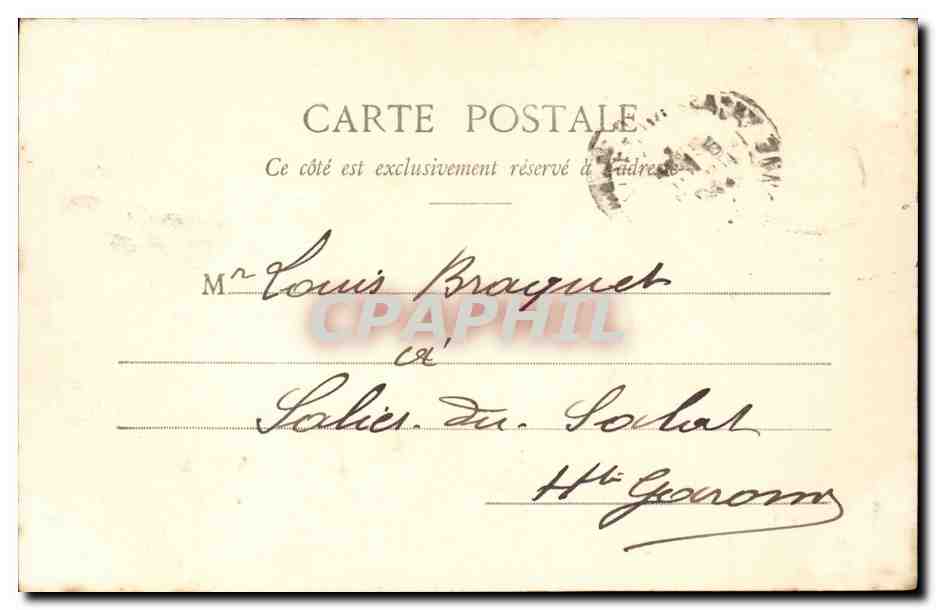 CARTE POSTALE
Ce côté est exclusivement réservé à l'adresse
Mr Louis Braquet
CPAPHIL
à
Salies-du-Salat
Hte Garonne